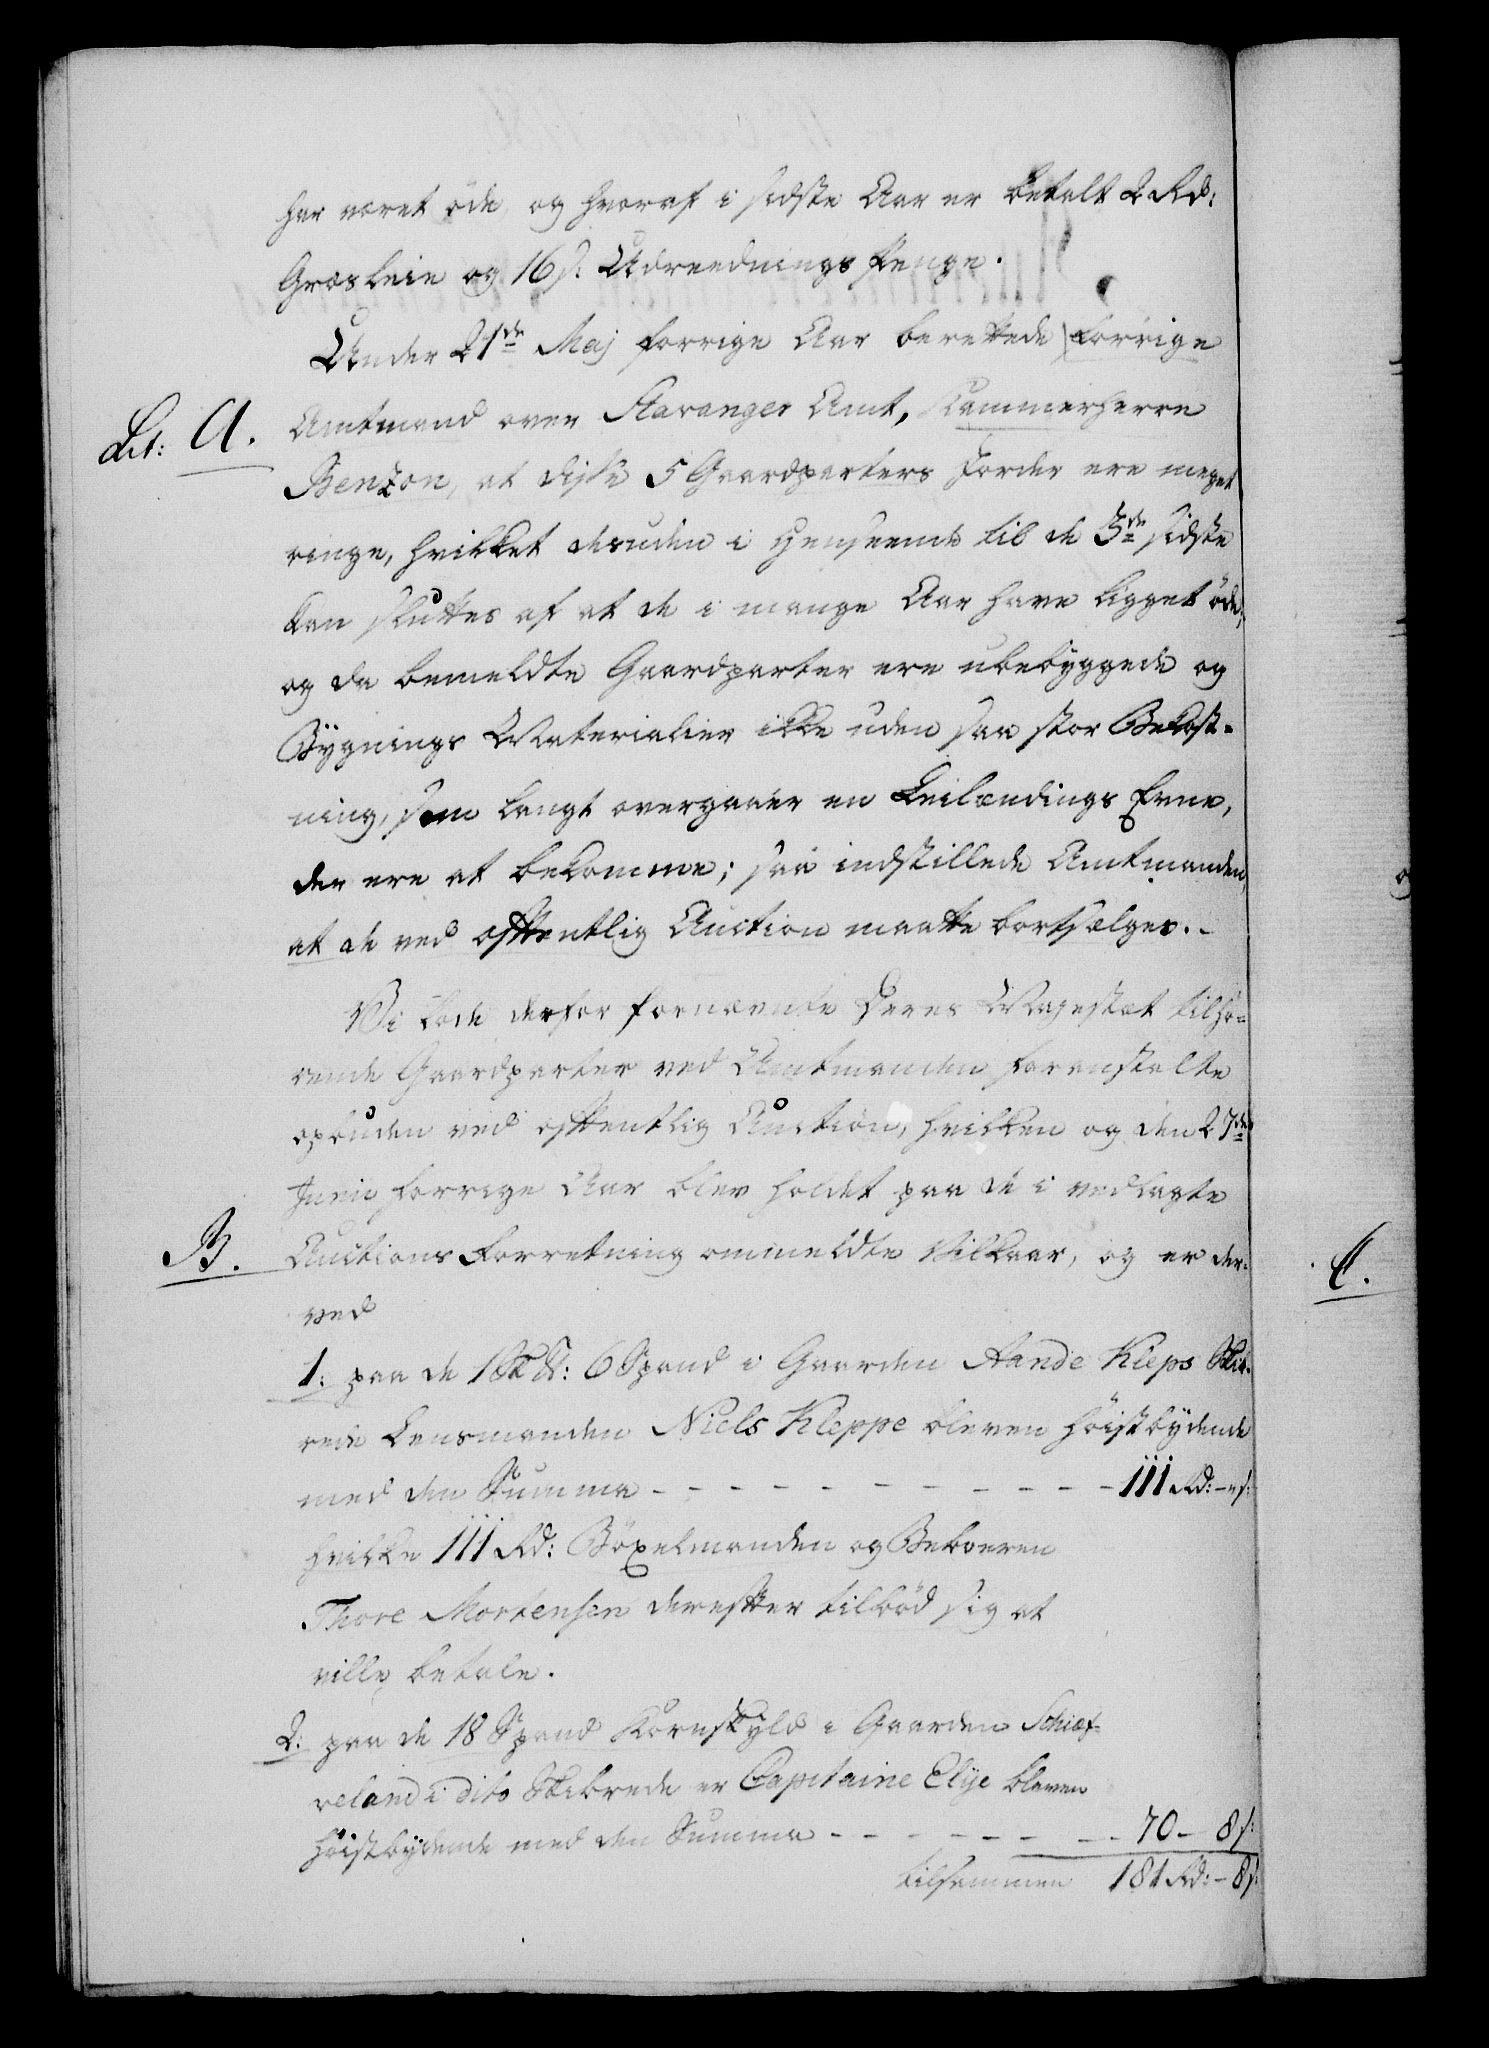 har været öde, og hvoraf i sidste Aar er betalt 2 Rd:
Græsleie og 16 s: Udreednings Penge.
Under 21de Maj forrige Aar berettede forrige
Lit: A. Amtmand over Stavanger Amt, Kammerherre
Benzon, at disse 5 Gaardparters Jorder ere meget
ringe, hvilket desuden i Henseende til de 3de sidste
kan sluttes af at de i mange Aar have ligget öde,
og da bemeldte Gaardparter ere ubebyggede og
Bygnings Materialier ikke uden saa stor Bekost-
ning, som langt overgaaer en Leilændings Evne,
der ere at bekomme; saa indstillede Amtmanden,
at de ved offentlig Auction maatte bortsælges.-
Vi lode derfor fornævnte Deres Majestæt tilhö-
rende Gaardparter ved Amtmanden foranstalte
opbuden ved offentlig Auction, hvilken og den 27de
Junii forrige Aar blev holdet paa de i vedlagte
B. Auctions Forretning ommeldte Vilkaar, og er der-
ved
1: paa de 1 Sk ℔: 6 Spand i Gaarden Aande Kleps Skib-
rede Lensmanden Niels Kleppe bleven höistbydende
med den Summa - - - - - - - - - - - - 111 Rd: - " s:
hvilke 111 Rd: Böxelmanden og Beboeren
Thore Mortensen derefter tilböd sig at
ville betale.
2: paa de 18 Spand Kornskyld i Gaarden Schief-
veland i dito Skibrede er Capitaine Elije bleven
höistbydende med den Summa - - - - - - - - 70 - 8 s:
tilsammen 181 Rd: - 8 s:
C.